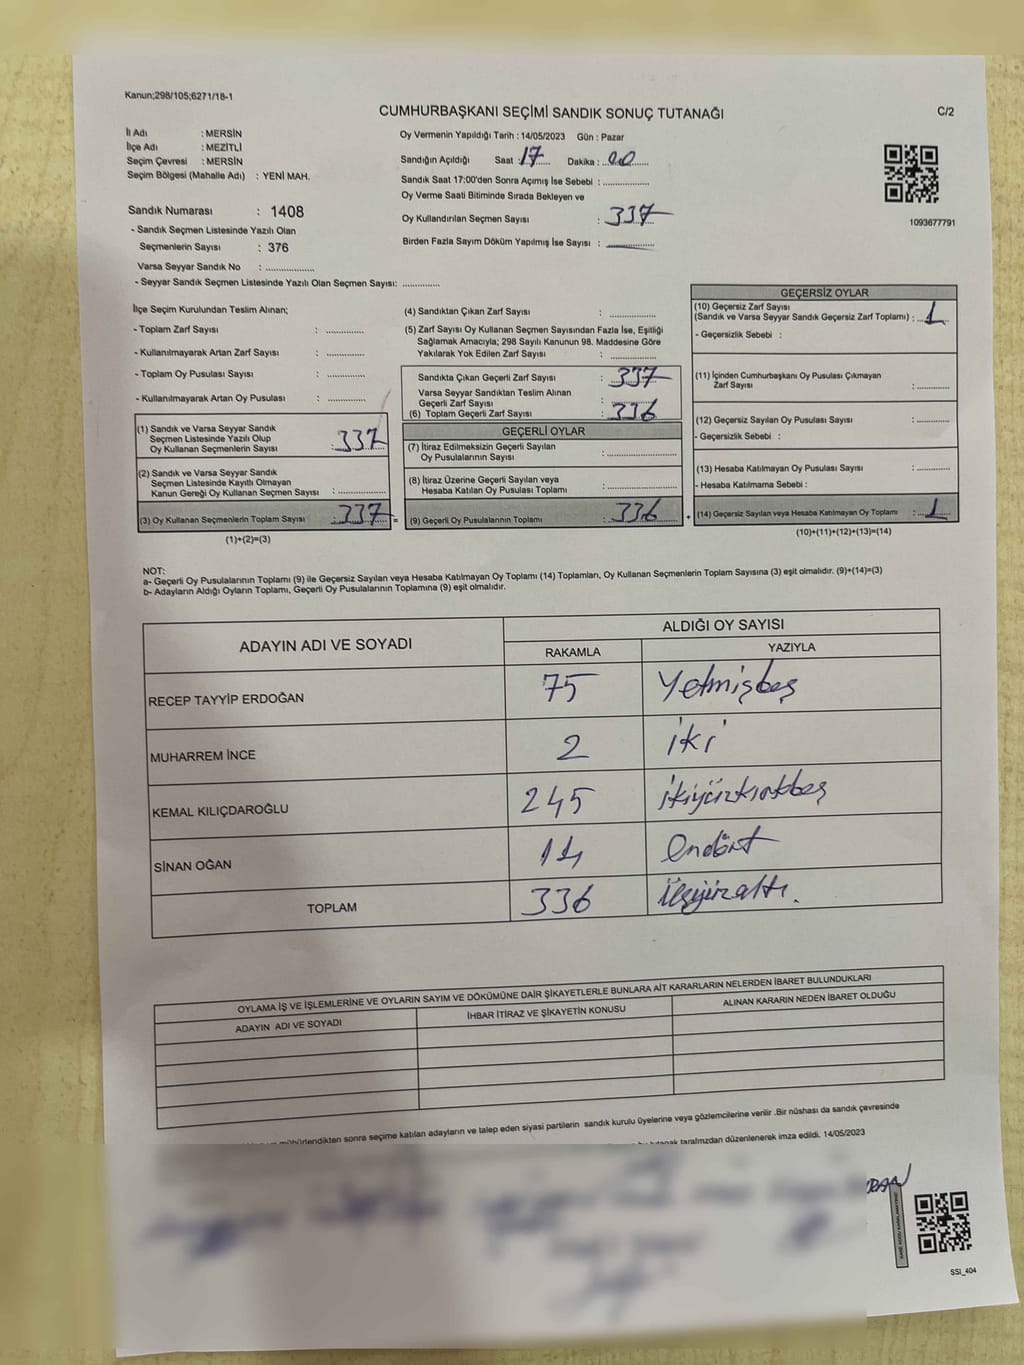 Kanun;298/105;6271/18-1
CUMHURBAŞKANI SEÇİMİ SANDIK SONUÇ TUTANAĞI
C/2
İl Adı : MERSİN
İlçe Adı : MEZİTLİ
Seçim Çevresi : MERSİN
Seçim Bölgesi (Mahalle Adı) : YENİ MAH.
Sandık Numarası : 1408
- Sandık Seçmen Listesinde Yazılı Olan
Seçmenlerin Sayısı : 376
Varsa Seyyar Sandık No : ................
- Seyyar Sandık Seçmen Listesinde Yazılı Olan Seçmen Sayısı: ............
Oy Vermenin Yapıldığı Tarih : 14/05/2023 Gün : Pazar
Sandığın Açıldığı Saat : 17 Dakika : 00
Sandık Saat 17:00'den Sonra Açımış İse Sebebi : ...............
Oy Verme Saati Bitiminde Sırada Bekleyen ve
Oy Kullandırılan Seçmen Sayısı : 337
Birden Fazla Sayım Döküm Yapılmış İse Sayısı : ...............
1093677791
İlçe Seçim Kurulundan Teslim Alınan;
- Toplam Zarf Sayısı : ............
- Kullanılmayarak Artan Zarf Sayısı : ............
- Toplam Oy Pusulası Sayısı : ............
- Kullanılmayarak Artan Oy Pusulası : ............
(1) Sandık ve Varsa Seyyar Sandık
Seçmen Listesinde Yazılı Olup
Oy Kullanan Seçmenlerin Sayısı : 337
(2) Sandık ve Varsa Seyyar Sandık
Seçmen Listesinde Kayıtlı Olmayan
Kanun Gereği Oy Kullanan Seçmen Sayısı : ...............
(3) Oy Kullanan Seçmenlerin Toplam Sayısı : 337 =
(1)+(2)=(3)
(4) Sandıktan Çıkan Zarf Sayısı : ...............
(5) Zarf Sayısı Oy Kullanan Seçmen Sayısından Fazla İse, Eşitliği
Sağlamak Amacıyla; 298 Sayılı Kanunun 98. Maddesine Göre
Yakılarak Yok Edilen Zarf Sayısı : ...............
Sandıkta Çıkan Geçerli Zarf Sayısı : 337
Varsa Seyyar Sandıktan Teslim Alınan
Geçerli Zarf Sayısı :
(6) Toplam Geçerli Zarf Sayısı : 336
GEÇERLİ OYLAR
(7) İtiraz Edilmeksizin Geçerli Sayılan
Oy Pusulalarının Sayısı : ...............
(8) İtiraz Üzerine Geçerli Sayılan veya
Hesaba Katılan Oy Pusulası Toplamı : ...............
(9) Geçerli Oy Pusulalarının Toplamı : 336 +
GEÇERSİZ OYLAR
(10) Geçersiz Zarf Sayısı
(Sandık ve Varsa Seyyar Sandık Geçersiz Zarf Toplamı) : 1
- Geçersizlik Sebebi :
(11) İçinden Cumhurbaşkanı Oy Pusulası Çıkmayan
Zarf Sayısı : ............
(12) Geçersiz Sayılan Oy Pusulası Sayısı : ............
- Geçersizlik Sebebi :
(13) Hesaba Katılmayan Oy Pusulası Sayısı : ............
- Hesaba Katılmama Sebebi :
(14) Geçersiz Sayılan veya Hesaba Katılmayan Oy Toplamı : 1
(10)+(11)+(12)+(13)=(14)
NOT:
a- Geçerli Oy Pusulalarının Toplamı (9) ile Geçersiz Sayılan veya Hesaba Katılmayan Oy Toplamı (14) Toplamları, Oy Kullanan Seçmenlerin Toplam Sayısına (3) eşit olmalıdır. (9)+(14)=(3)
b- Adayların Aldığı Oyların Toplamı, Geçerli Oy Pusulalarının Toplamına (9) eşit olmalıdır.
ADAYIN ADI VE SOYADI ALDIĞI OY SAYISI
RAKAMLA YAZIYLA
RECEP TAYYİP ERDOĞAN 75 Yetmişbeş
MUHARREM İNCE 2 iki
KEMAL KILIÇDAROĞLU 245 ikiyüzkırkbeş
SİNAN OĞAN 14 Ondört
TOPLAM 336 üçyüzaltı.
OYLAMA İŞ VE İŞLEMLERİNE VE OYLARIN SAYIM VE DÖKÜMÜNE DAİR ŞİKAYETLERLE BUNLARA AİT KARARLARIN NELERDEN İBARET BULUNDUKLARI
ADAYIN ADI VE SOYADI İHBAR İTİRAZ VE ŞİKAYETİN KONUSU ALINAN KARARIN NEDEN İBARET OLDUĞU
mühürlendikten sonra seçime katılan adayların ve talep eden siyasi partilerin sandık kurulu üyelerine veya gözlemcilerine verilir .Bir nüshası da sandık çevresinde
tutanak tarafımızdan düzenlenerek imza edildi. 14/05/2023
SSI_404